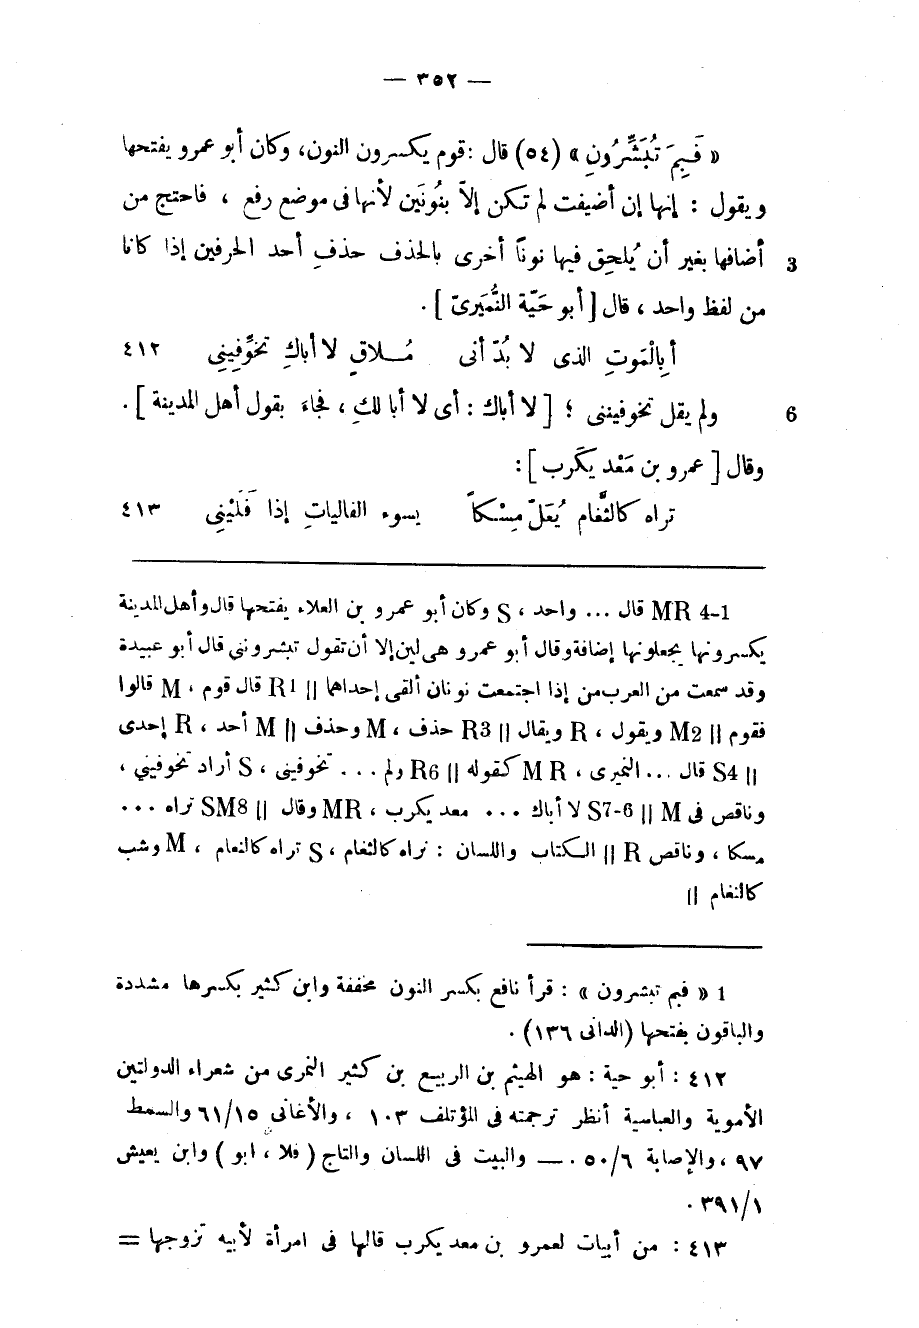 — ٣٥٢ —
« فَبِمَ تُبَشِّرُونِ » (٥٤) قال : قوم يكسرون النون، وكان أبو عمرو يفتحها
ويقول : إنها إن أضيفت لم تكن إلاّ بنُونَين لأنها فى موضع رفع ، فاحتج من
أضافها بغير أن يُلحِق فيها نوناً أخرى بالحذف حذفِ أحد الحرفين إذا كانا 3
من لفظ واحد ، قال [ أبو حَيّة النُّمَيرىّ ] .
أبِالْمَوتِ الذى لا بُدّ أنى مُـلاقٍ لا أباكِ تخوِّفِينِى ٤١٢
ولم يقل تخوفيننى ؛ [ لا أباك : أى لا أبا لكِ ، فجاءَ بقول أهل المدينة ] . 6
وقال [ عمرو بن مَعْد يكَرب ] :
تراه كالثَّغام يُعَلّ مِسْكاً يسوء الفالياتِ إذا فَلَيْنِى ٤١٣
1-4 MR قال ... واحد ، S وكان أبو عمرو بن العلاء يفتحها قال وأهل المدينة
يكسرونها يجعلونها إضافة وقال أبو عمرو هى لين إلا أن تقول تبشرونني قال أبو عبيدة
وقد سمعت من العرب من إذا اجتمعت نونان ألقى إحداهما || R1 قال قوم ، M قالوا
فقوم || M2 ويقول ، R ويقال || R3 حذف ، M وحذف || M أحد ، R إحدى
|| S4 قال ... النميرى ، M R كقوله || R6 ولم ... تخوفينى ، S أراد تخوفينني ،
وناقص فى M || S7-6 لا أباك ... معد يكرب ، MR وقال || SM8 تراه ...
مسكا ، وناقص R || الكتاب واللسان : تراه كالثغام ، S تراه كالنعام ، M وشب
كالنغام ||
1 « فبم تبشرون » : قرأ نافع بكسر النون مخففة وابن كثير بكسرها مشددة
والباقون بفتحها (الدانى ١٣٦) .
٤١٢ : أبو حية : هو الهيثم بن الربيع بن كثير النمرى من شعراء الدولتين
الأموية والعباسية أنظر ترجمته فى المؤتلف ١٠٣ ، والأغانى ٦١/١٥ والسمط
٩٧ ، والإصابة ٥٠/٦ . — والبيت فى اللسان والتاج ( فلا ، ابو ) وابن يعيش
٣٩١/١ .
٤١٣ : من أبيات لعمرو بن معد يكرب قالها فى امرأة لأبيه تزوجها =